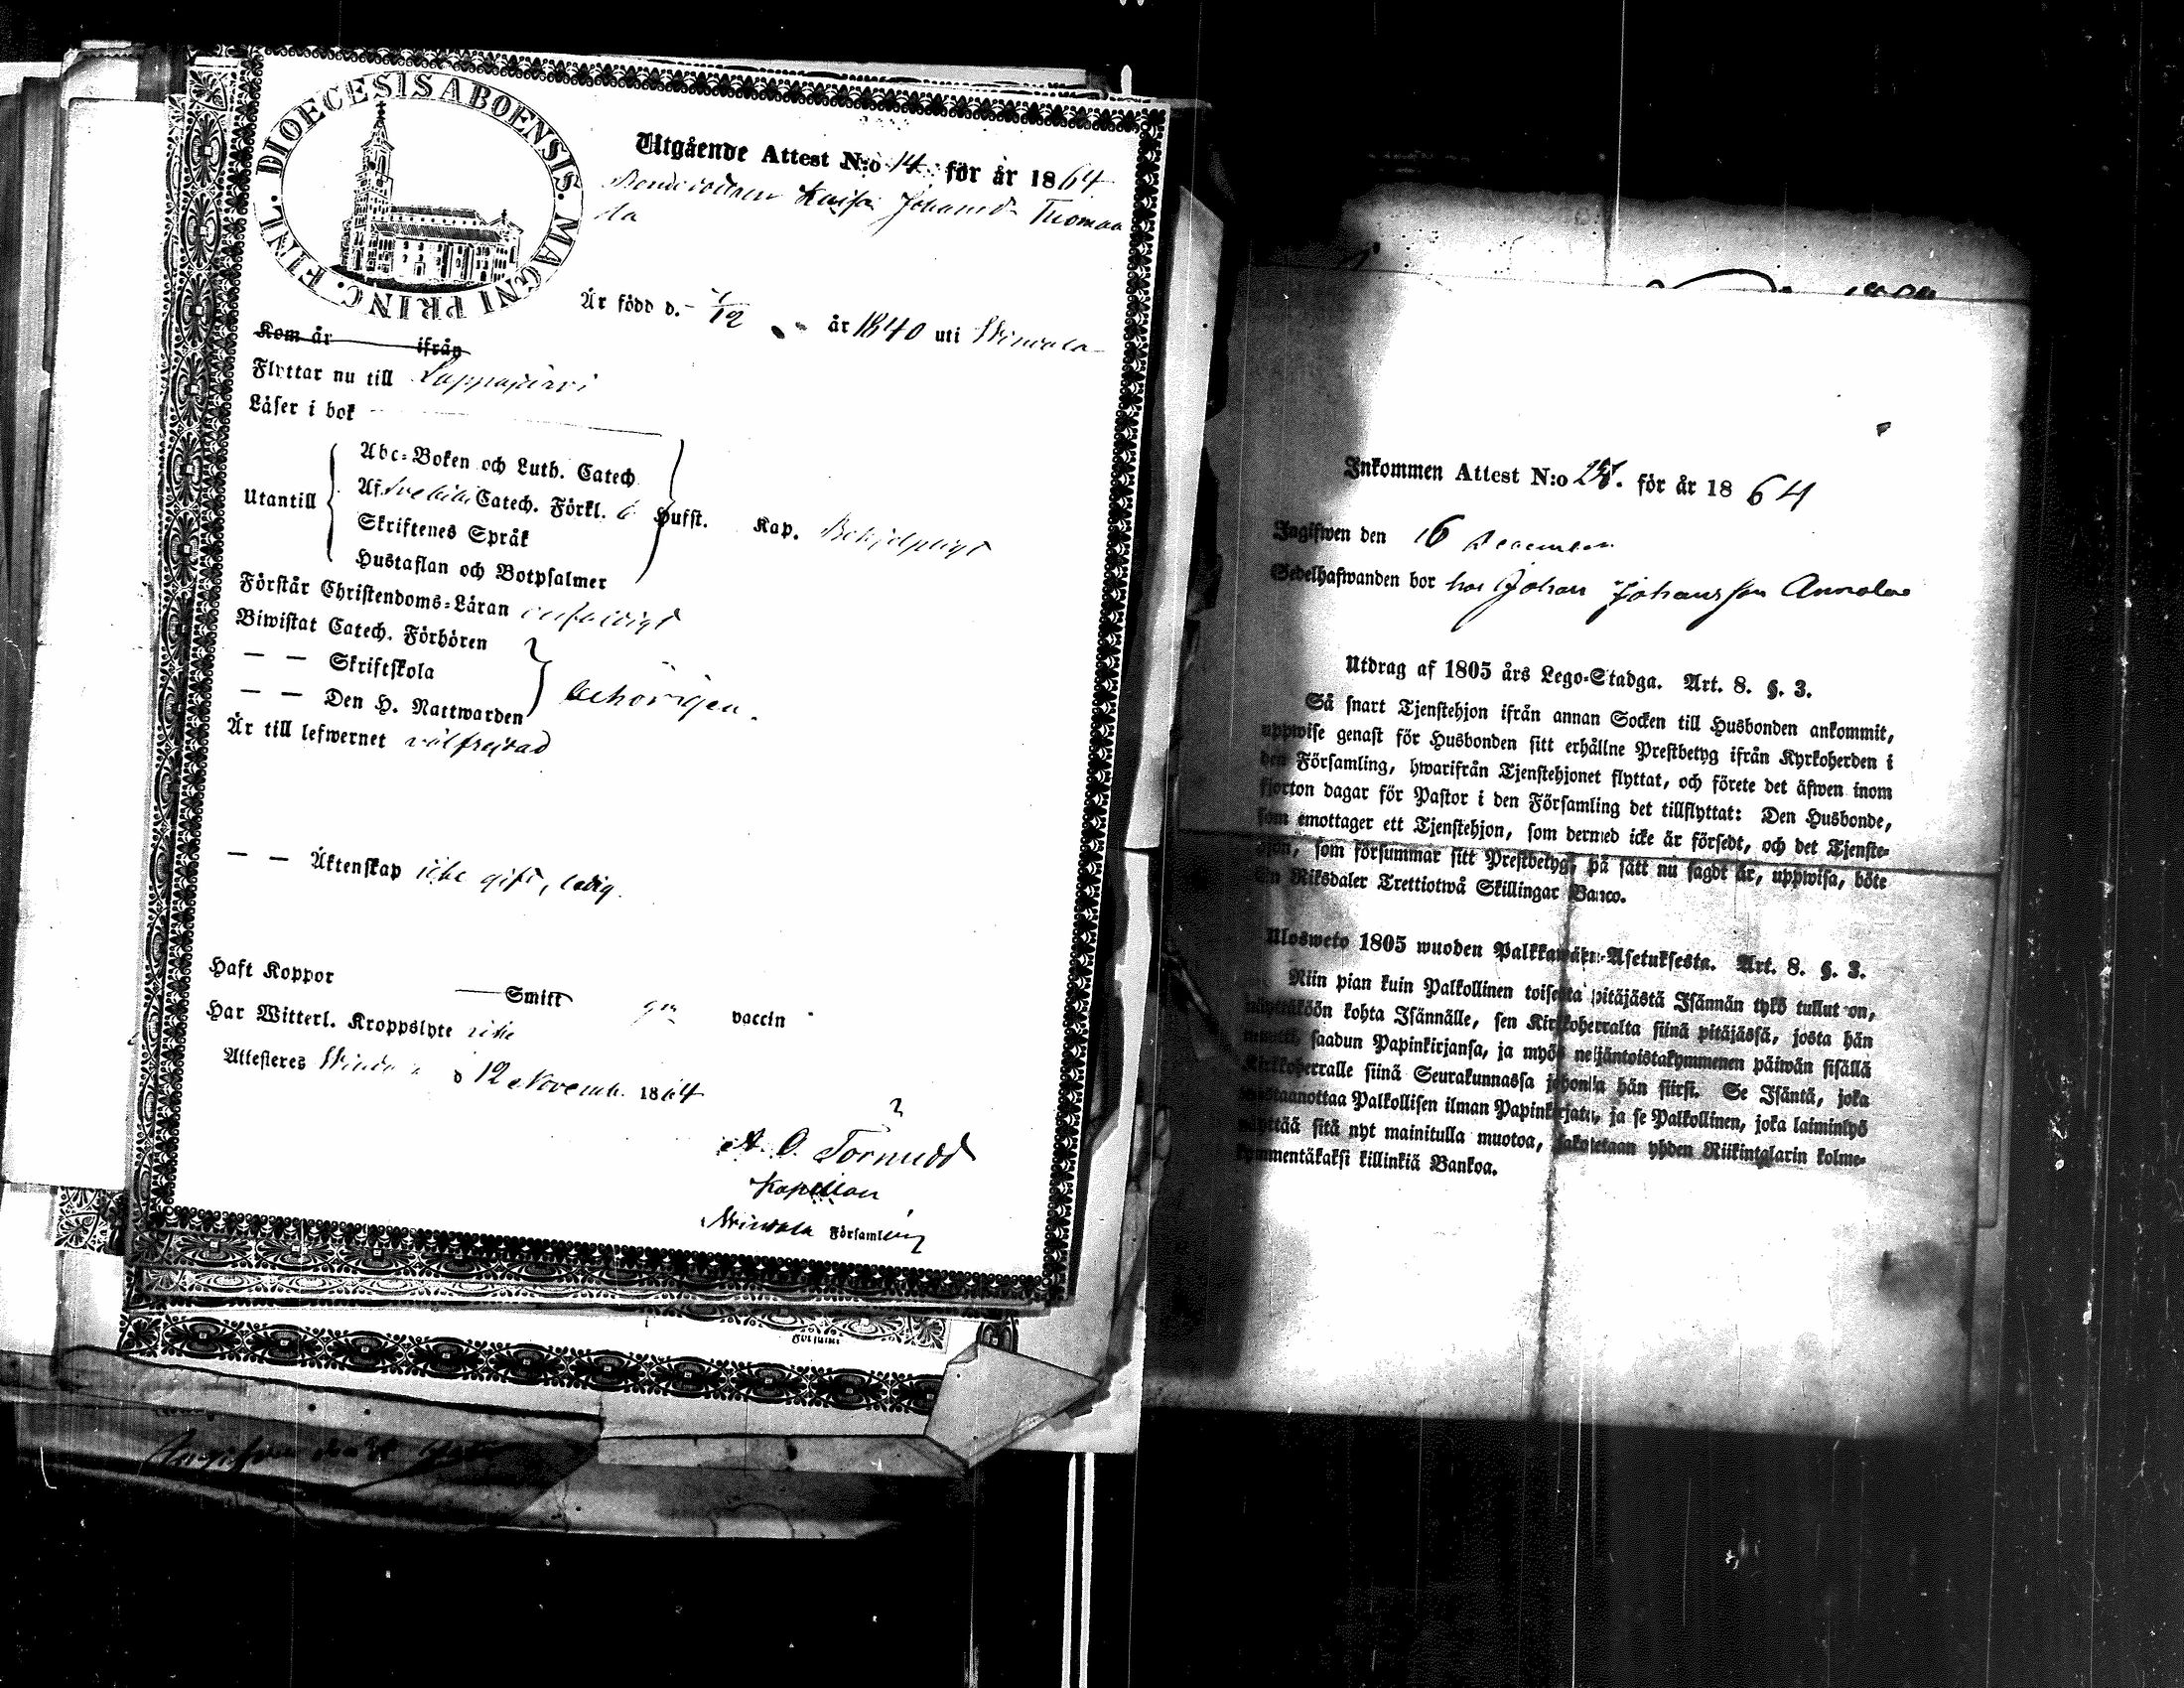 DIOECESIS ABOENSIS. MAGNI PRINC. FINL.
Utgående Attest N:o 14 för år 1864
Bondedottren Kaisa Johanna Thomas
Är född d. /12 år 1840 uti Windala
Kom år ifrån
Flyttar nu till Lappajärvi
Läser i bok
Utantill
Abc-Boken och Luth. Catech
Af Svebilii Catech. Förkl. 6 Hufst. Kap. Behjelpligt
Skriftenes Språk
Hustaflan och Botpsalmer
Förstår Christendoms-Läran enfaldigt
Biwistat Catech. Förhören
— — Skriftskola
— — Den H. Nattwarden
behörigen.
Är till lefwernet välfrejdad
— — Äktenskap icke gift, ledig.
Haft Koppor
Smitt vaccin
Har Witterl. Kroppslyte icke
Attesteres Windala d 12 Novemb. 1864
A. O. Törnudd
Kapellan
Windala Församling
Församl
Inkommen Attest N:o för år 1864
Ingifwen den 16 December
Sedelhafwanden bor hos Johan Johansson Annala
Utdrag af 1805 års Lego-Stadga. Art. 8. §. 3.
Så snart Tjenstehjon ifrån annan Socken till Husbonden ankommit,
uppwise genast för Husbonden sitt erhållne Prestbetyg ifrån Kyrkoherden i
den Församling, hwarifrån Tjenstehjonet flyttat, och förete det äfwen inom
fjorton dagar för Pastor i den Församling det tillflyttat: Den Husbonde,
som emottager ett Tjenstehjon, som dermed icke är försedt, och det Tjenste-
hjon, som försummar sitt Prestbetyg, på sätt nu sagdt är, uppwisa, böte
En Riksdaler Trettiotwå Skillingar Banco.
Ulosweto 1805 wuoden Palkkawäen-Asetuksesta. Art. 8. §. 3.
Niin pian kuin Palkollinen toisesta pitäjästä Isännän tykö tullut on,
näyttäköön kohta Isännälle, sen Kirkkoherralta siinä pitäjässä, josta hän
muutti, saadun Papinkirjansa, ja myös neljäntoistakymmenen päiwän sisällä
Kirkkoherralle siinä Seurakunnassa johonka hän siirsi. Se Isäntä, joka
wastaanottaa Palkollisen ilman Papinkirjata, ja se Palkollinen, joka laiminlyö
näyttää sitä nyt mainitulla muotoa, sakotetaan yhden Riikintalarin kolme-
kymmentäkaksi killinkiä Bankoa.